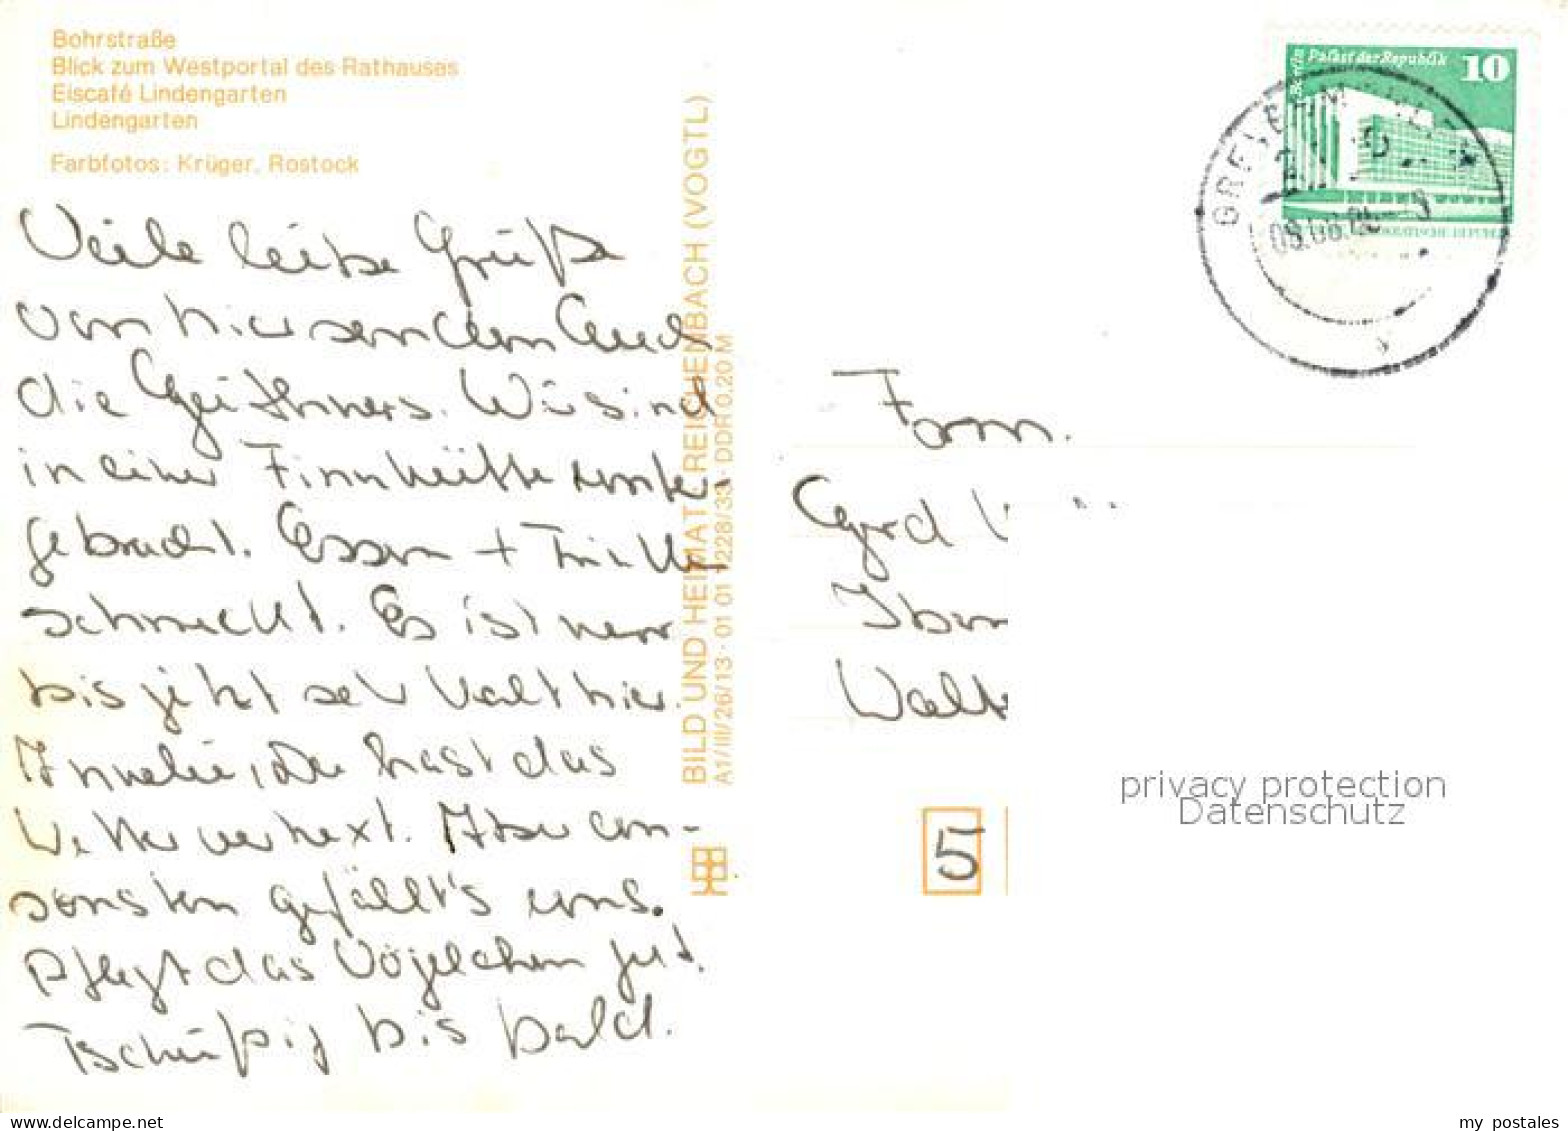 Bohrstraße
Blick zum Westportal des Rathauses
Eiscafé Lindengarten
Lindengarten
Farbfotos: Krüger, Rostock
Viele liebe Grüße
von hier senden Euch
die Günthners. Wir sind
in einer Finnhütte unter-
gebracht. Essen + Trinken
schmeckt. Es ist nur
bis jetzt sehr kalt hier.
Annelie, Du hast das
Wetter verhext. Aber an-
sonsten gefällt's uns.
Pflegt das Vögelchen gut.
Tschüßig bis bald.
BILD UND HEIMAT REICHENBACH (VOGTL)
A1/III/26/13 · 01 01 1228/33 · DDR 0,20 M
Berlin Palast der Republik 10
GREVESMÜHLEN
Fam.
Gerd
5
privacy protection
Datenschutz
my postales